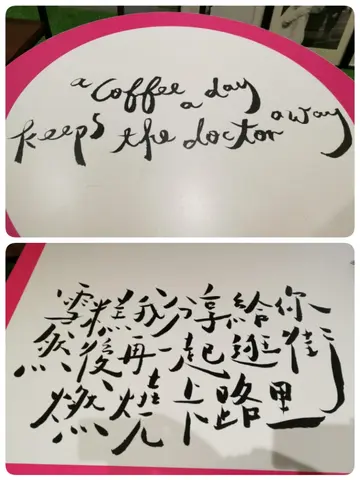 a coffee a day
keeps the doctor away
雪糕我分享給你
然後再一起逛街
燃燒卡路里